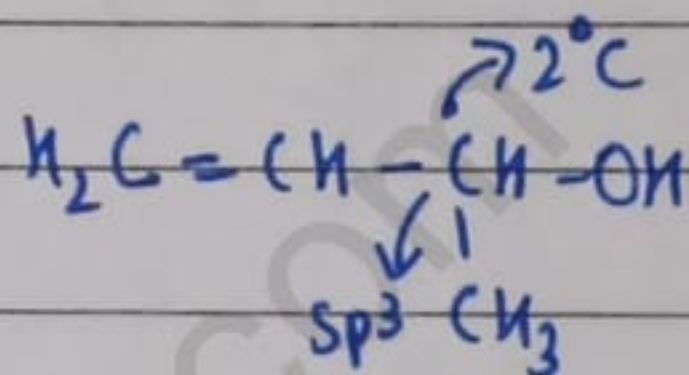 2°C
H₂C = CH - CH - OH
sp3 CH₃
com